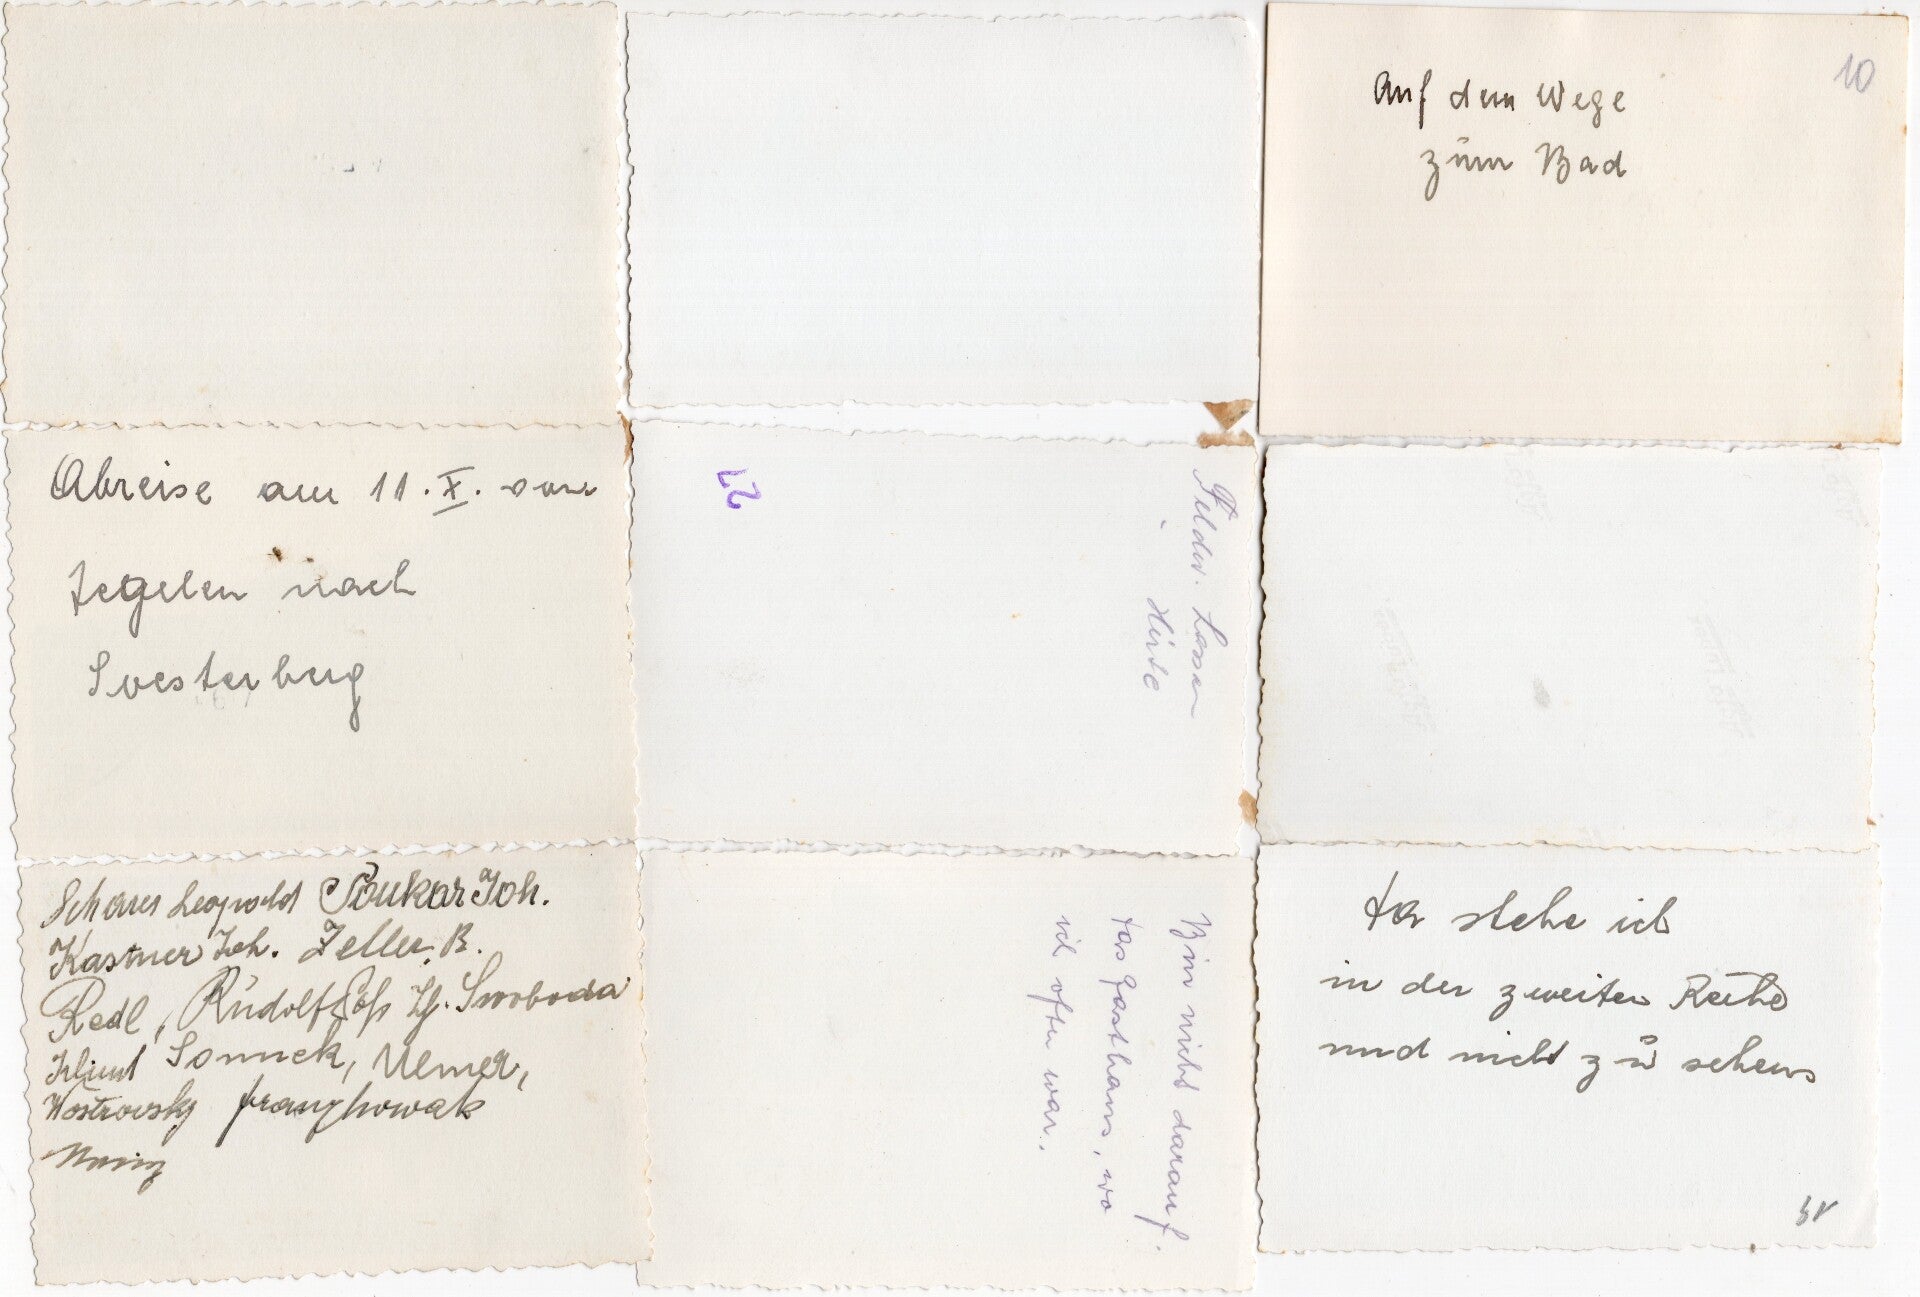 Auf dem Wege
zum Bad
10
Abreise am 11. X. von
Tegelen nach
Soesterberg
22
Feldw. Lossen
Hirte
Leopold Joh.
Kastner Joh. Zeller B.
Redl, Rudolf Swoboda
Klimt Sonnek, Ulmer,
Wostrovsky Franz Nowak
Bin nicht darauf.
das Gasthaus, wo
ich öfter war.
da stehe ich
in der zweiten Reihe
und nicht zu sehen